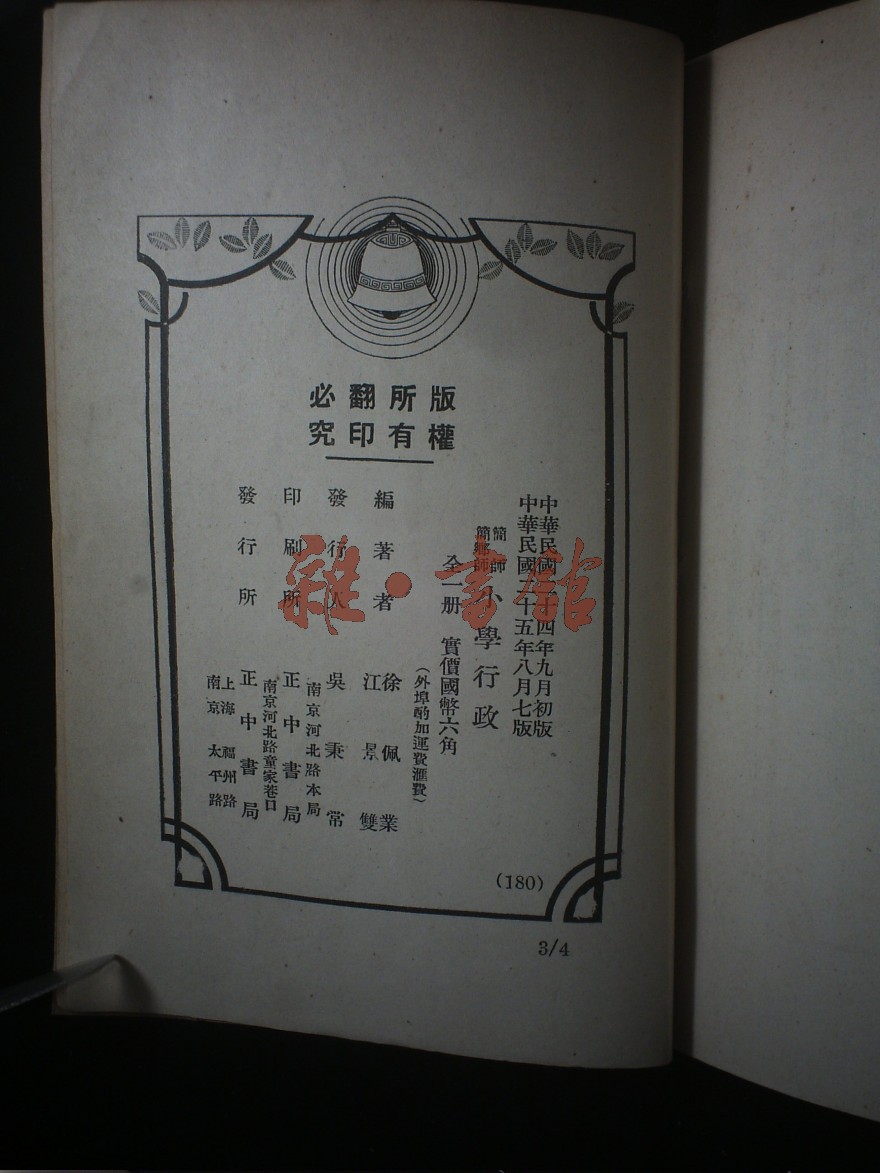 版權所有翻印必究
中華民國二十四年九月初版
中華民國二十五年八月七版
簡師
簡鄉師
小學行政
全一册 實價國幣六角
(外埠酌加運費滙費)
編著者 徐佩業
江景雙
發行人 吳秉常
南京河北路本局
印刷所 正中書局
南京河北路童家巷口
發行所 正中書局
上海福州路
南京太平路
(180)
3/4
雜·書館